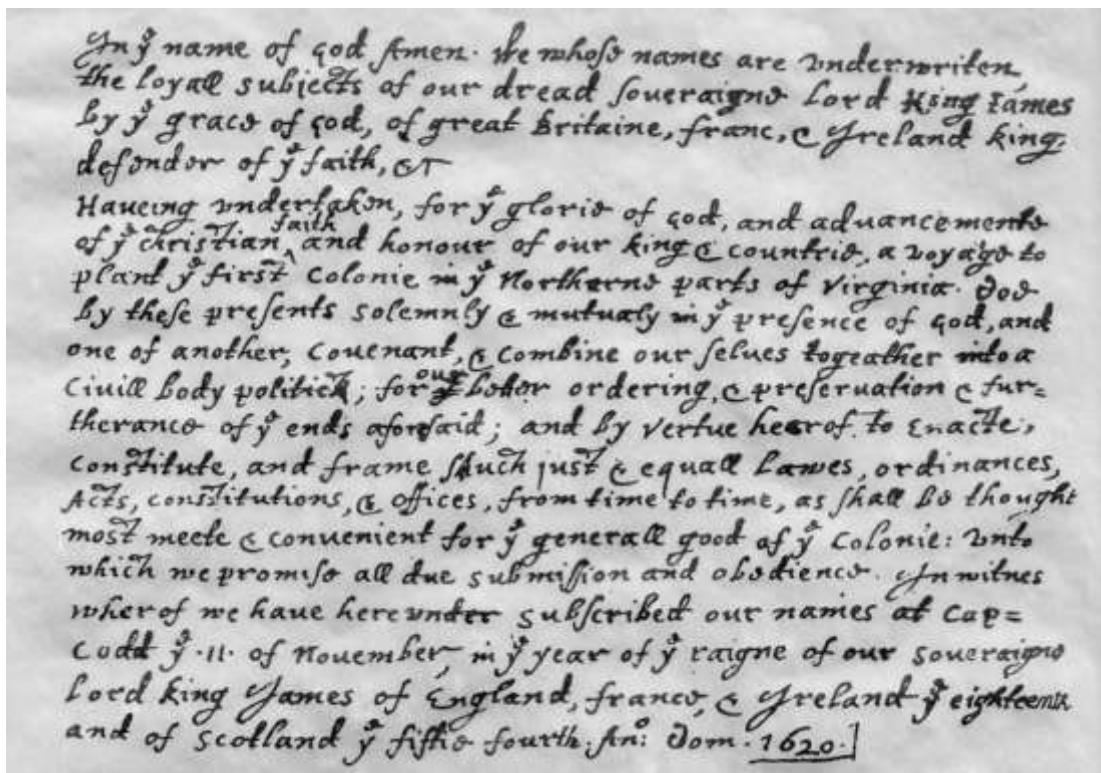 In yᵉ name of god Amen. We whose names are vnderwriten,
the loyall subjects of our dread soueraigne Lord King Iames
by yᵉ grace of god, of great Britaine, franc, & Ireland king,
defender of yᵉ faith, &c
Haueing vndertaken, for yᵉ glorie of god, and aduancemente
of yᵉ christian ^faith and honour of our king & countrie, a voyage to
plant yᵉ first Colonie in yᵉ Northerne parts of Virginia. Doe
by these presents solemnly & mutualy in yᵉ presence of god, and
one of another, Couenant, & combine our selues togeather into a
Ciuill body politick; for our beter ordering, & preseruation & fur=
therance of yᵉ ends aforesaid; and by vertue hearof, to Enacte,
Constitute, and frame shuch just & equall Lawes, ordinances,
Acts, constitutions, & offices, from time to time, as shall be thought
most meete & conuenient for yᵉ generall good of yᵉ Colonie: vnto
which we promise all due submission and obedience. In witnes
wherof we have hereunder subscribed our names at Cap=
Codd yᵉ .11. of Nouember, in yᵉ year of yᵉ raigne of our soueraigne
Lord king James of England, france, & Ireland yᵉ eighteenth
and of Scotland yᵉ fiftie fourth. Anº: Dom. 1620.]